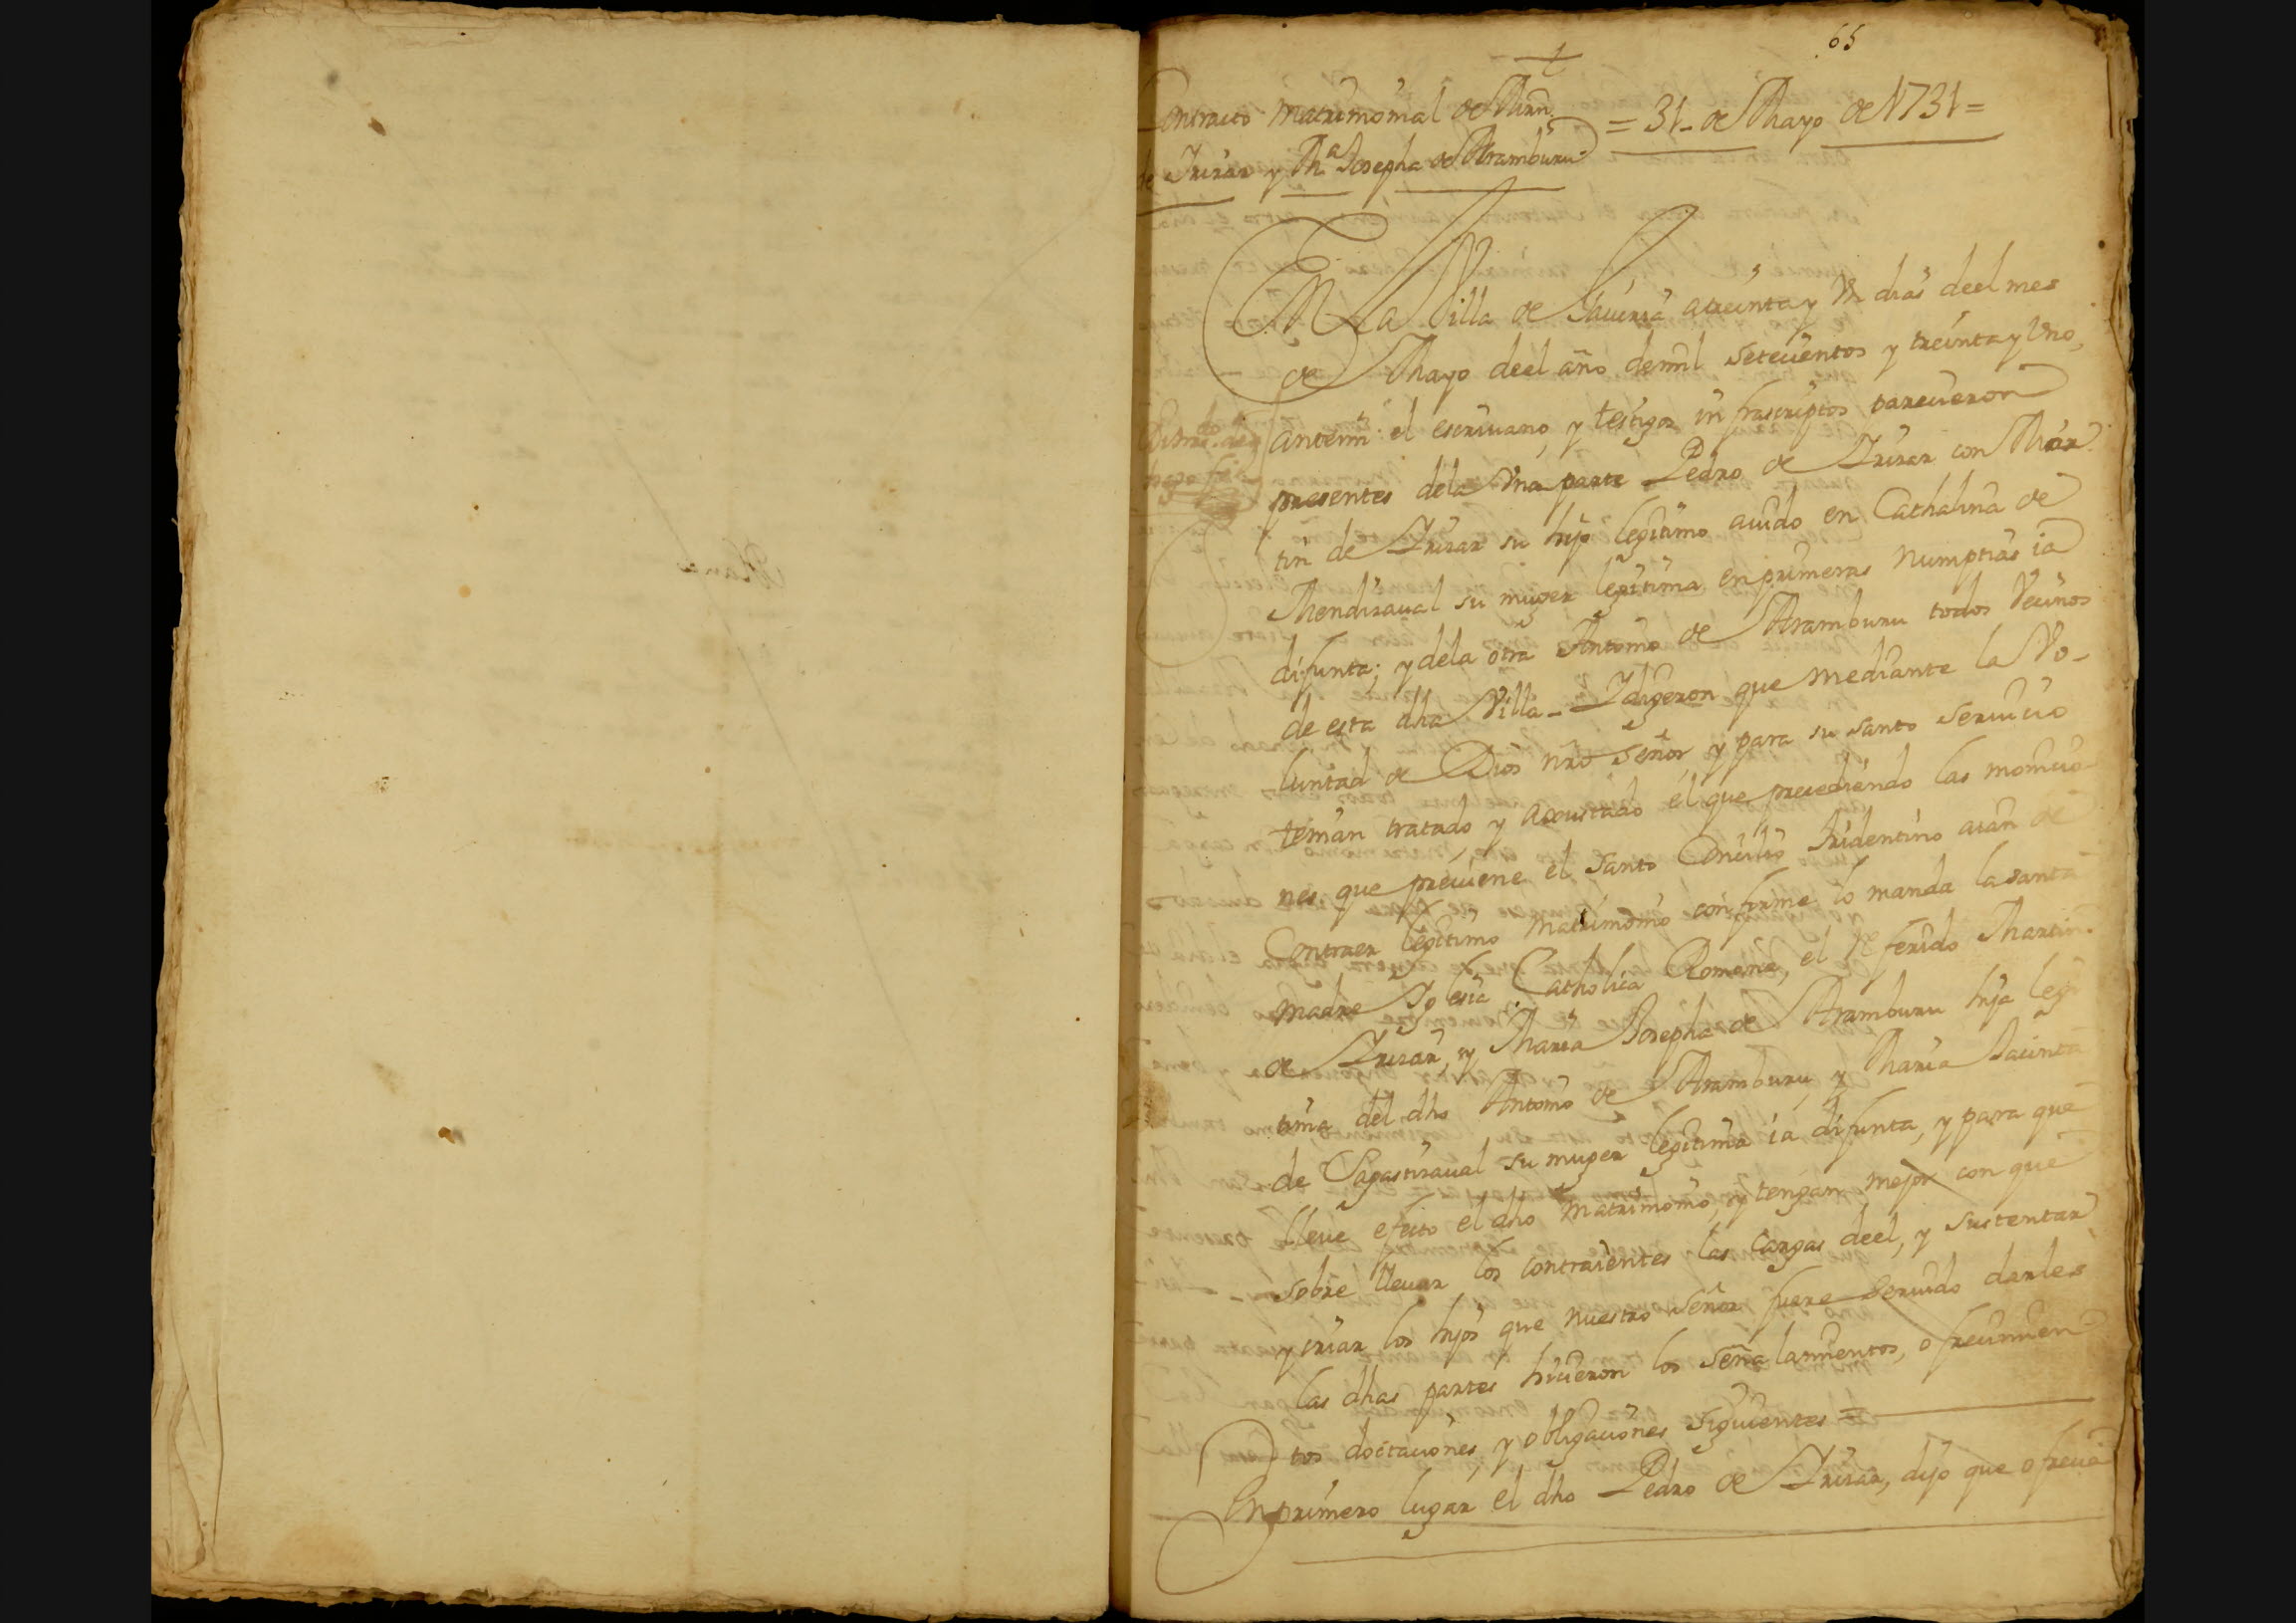 Blanca
65
Contracto Matrimonial de Mrn
de Irizar y Ma. Josepha de Aramburu
= 31- de Mayo de 1731=
En La Villa de Saurra atreinta y Un dias deel mes
de Mayo deel año demil setecientos y treinta y Uno,
antemi el escriuano, y testigos infrascriptos parecieron
presentes dela Una parte Pedro de Irizar con Mar
tin de Irizar su hijo legitimo auido en Cathalina de
Mendizaual su muger legitima en primeras Numptias ia
difunta; y dela otra Antonio de Aramburu todos Vecinos
de esta dha Villa - Idigeron que mediante la Vo-
luntad de Dios nro Señor y para su santo seruicio
tenian tratado, y axustado el que precediendo las monicio
nes que preuiene el santo Concilio tridentino aian de
Contraer legitimo Matrimonio conforme lo manda la santa
madre Iglesia Catholica Romana, el Referido Martin
de Irizar, y Maria Josepha de Aramburu hija legi
tima del dho Antonio de Aramburu, y Maria Jacinta
de Sagastizaual su muger legitima ia difunta, y para que
lleue efecto el dho Matrimonio, y tengan mejor con que
sobre lleuar los contraientes las cargas deel, y sustentar
y criar los hijos que nuestro señor fuere seruido darles
las dhas partes hicieron los señalamientos, ofrecimien
tos doctaciones, y obligaciones siguientes =
En primero lugar el dho Pedro de Irizar, dijo que ofrecia